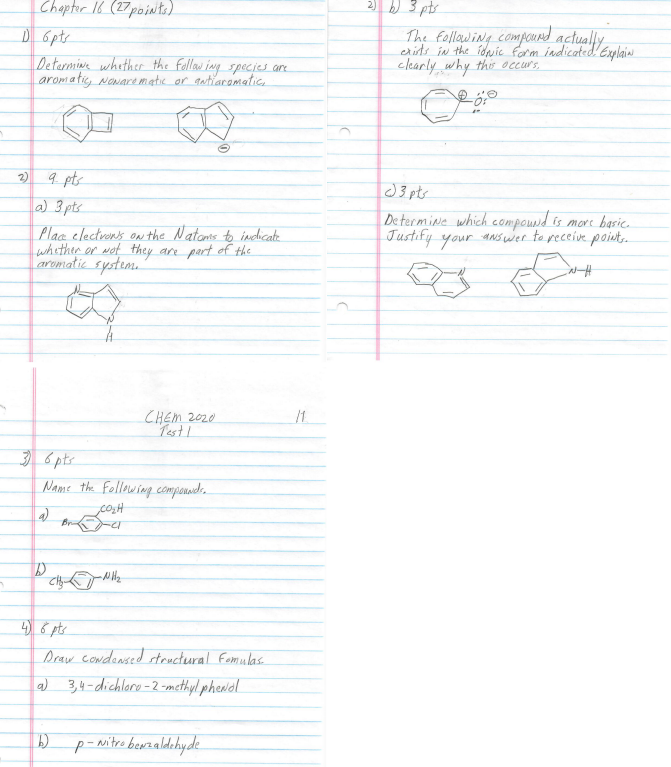 Chapter 16 (27 points)
1) 6 pts
Determine whether the following species are
aromatic, nonaromatic or antiaromatic.
⊖
2) 9 pts
a) 3 pts
Place electrons on the N atoms to indicate
whether or not they are part of the
aromatic system.
N
N
H
2) b) 3 pts
The following compound actually
exists in the ionic form indicated. Explain
clearly why this occurs.
⊕ O ⊖
c) 3 pts
Determine which compound is more basic.
Justify your answer to receive points.
N
N-H
CHEM 2020
Test 1
3) 6 pts
Name the following compounds.
a)
CO2H
Br
Cl
b)
CH3
NH2
4) 6 pts
Draw condensed structural Fomulas
a) 3,4-dichloro-2-methylphenol
b) p-nitrobenzaldehyde